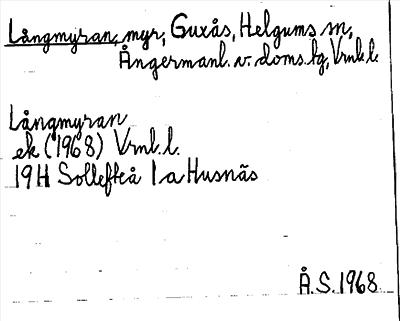 Långmyran, myr, Guxås, Helgums sn,
Ångermanl. v. doms.tg, Vrnl.l.
Långmyran
ek (1968) Vrnl.l.
19H Sollefteå 1a Husnäs
Å.S. 1968